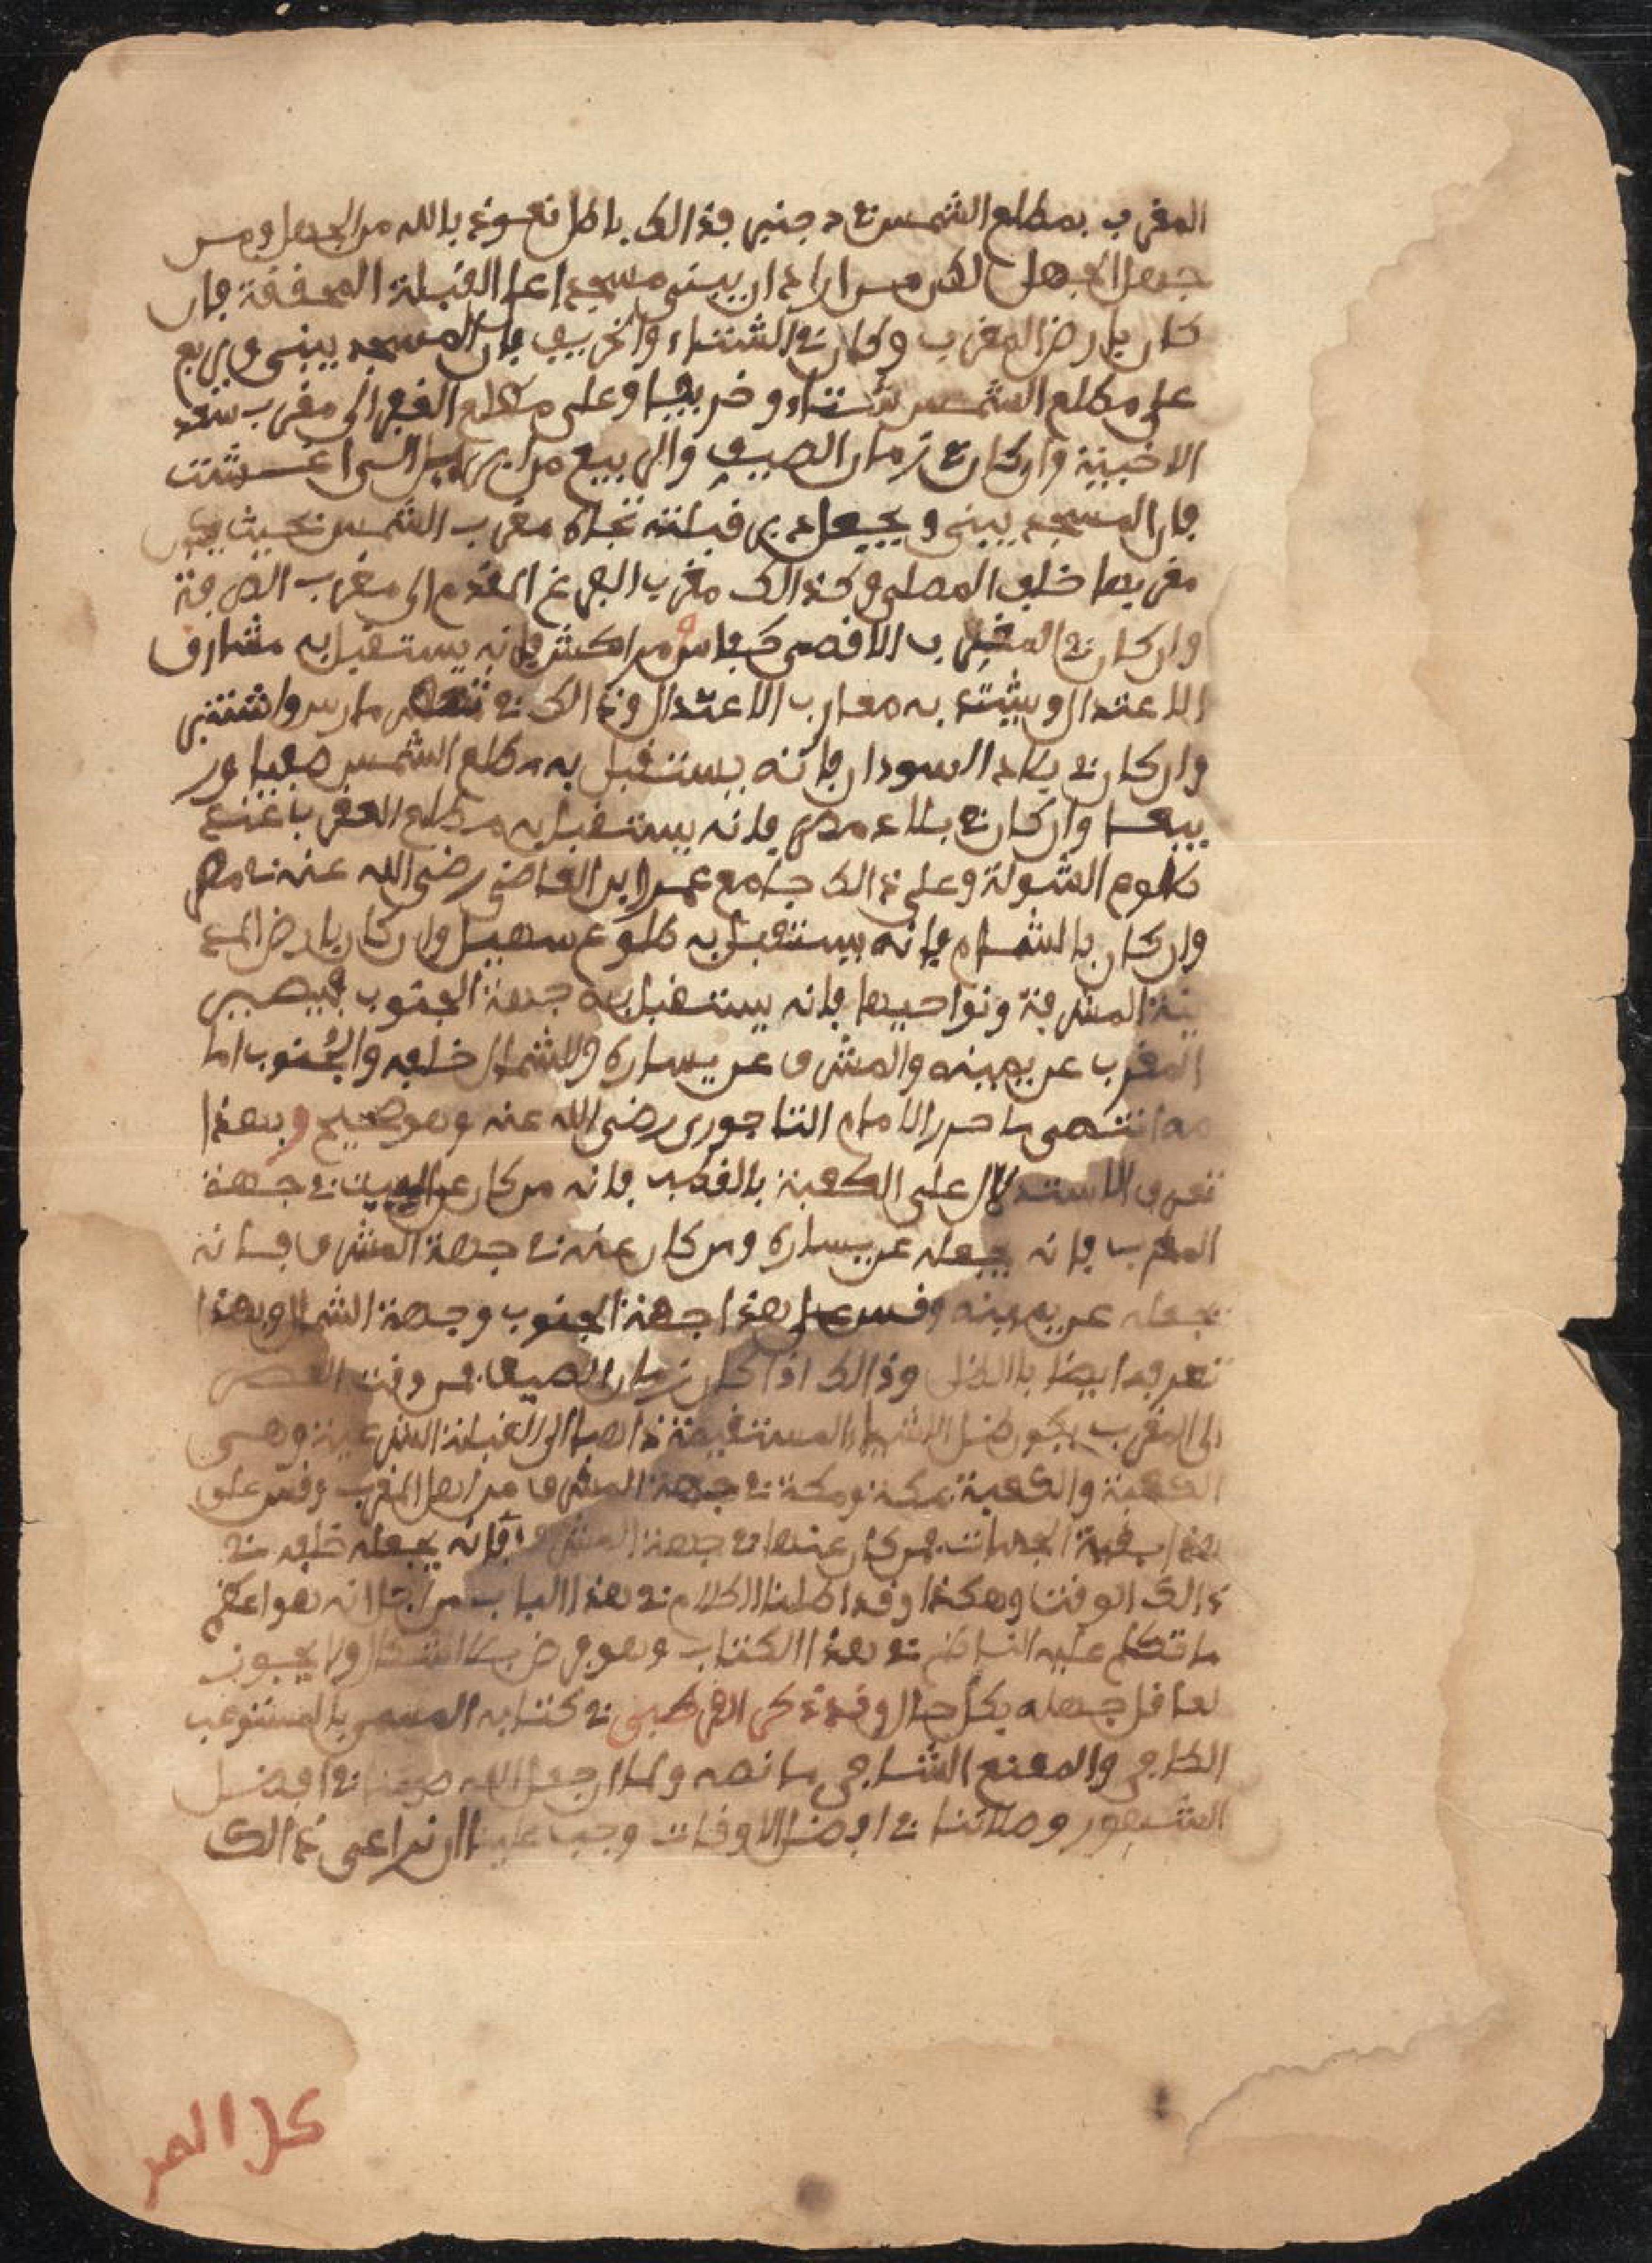 المغرب بمطلع الشمس في دجنبر فذالك باطل نعوذ بالله من الجهل ومن
جهل الجهل لكن من اراد ان يبني مسجدا على القبلة المحققة فان
كان بارض المغرب وكان في الشتاء والخريف فان المسجد يبنى
على مطلع الشمس شتاء وخريفا وعلى مطلع الفجر الى مغرب سعد
الاخبية وان كان في زمان الصيف والربيع من ابريل الى اغشت
فان المسجد يبنى و يجعل قبلته تجاه مغرب الشمس بحيث يكون
مغربها خلف المصلي وكذالك مغرب الفرغ المقدم الى مغرب الصرفة
وان كان في المغرب الاقصى كفاس ومراكش فانه يستقبل به مشارق
الاعتدال ويستدبر به مغارب الاعتدال وذالك في شهر مارس واشتنبر
وان كان في بلاد السودان فانه يستقبل به مطلع الشمس صيفا ور
بيعا وان كان في بلاد مصر فانه يستقبل به مطلع العقرب باعتد
طلوع الشولة وعلى ذالك جامع عمر ابن العاصي رضي الله عنه في مصر
وان كان بالشام فانه يستقبل به طلوع سهيل وان كان بارض المد
ينة المشرفة ونواحيها فانه يستقبل به جهة الجنوب فيصير
المغرب عن يمينه والمشرق عن يساره والشمال خلفه والجنوب اما
مه انتهى ما حرر الامام التاجوري رضي الله عنه وهو صحيح وبهذا
تعرف الاستدلال على الكعبة بالقطب فانه من كان عن البيت في جهة
المغرب فانه يجعله عن يساره ومن كان عنه في جهة المشرق فانه
يجعله عن يمينه وقس على هذا جهة الجنوب وجهة الشمال وبهذا
تعرف ايضا بالظل وذالك اذا كان زمان الصيف فمن وقت العصر
الى المغرب يكون ظل الاشياء المستقيمة ذاهبا الى القبلة الشرعية وهي
الكعبة والكعبة بمكة ومكة في جهة المشرق من اهل المغرب وقس على
هذا بقية الجهات فمن كان عنها في جهة المشرق فانه يجعله خلفه في
ذالك الوقت وهكذا وقد اطلنا الكلام في هذا الباب من اجل انه هو اعظم
ما تكلم عليه الناظم في هذا الكتاب وهو ولا يجوز
لعاقل جهله بكل حال وقد ذكر القرطبي في كتابه المسمى بالمستوعب
الكافي والمقنع الشافي ما نصه ولما ان جعل الله صومنا في افضل
الشهور وصلاتنا في افضل الاوقات وجب علينا ان نراعى ذالك
كل العر